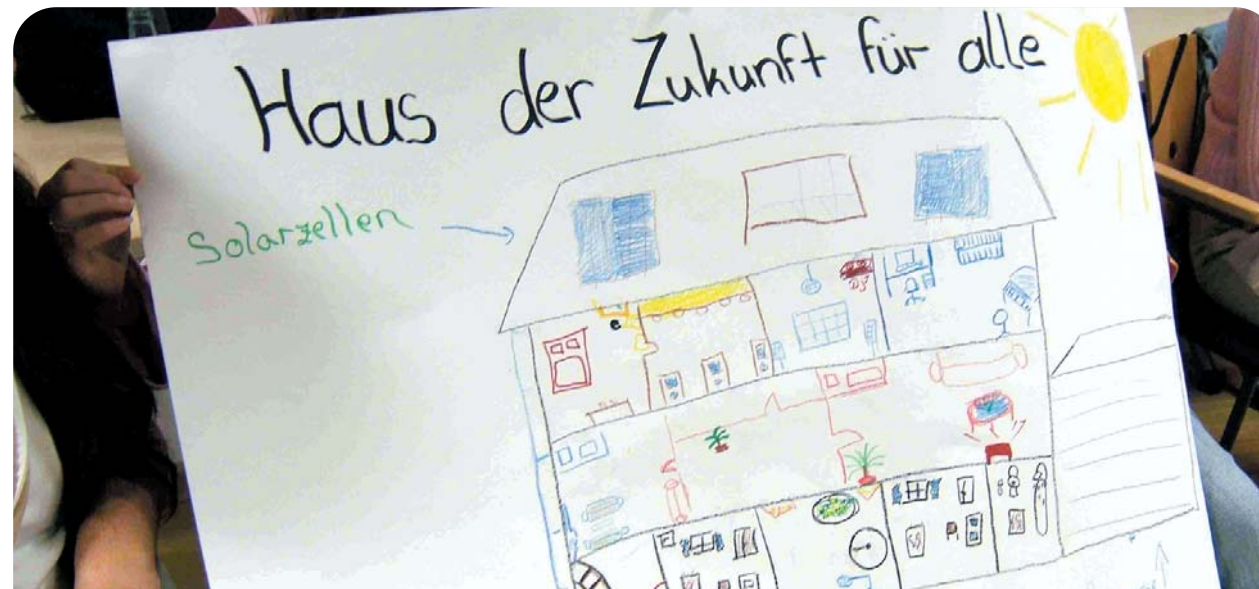 Haus der Zukunft für alle
Solarzellen